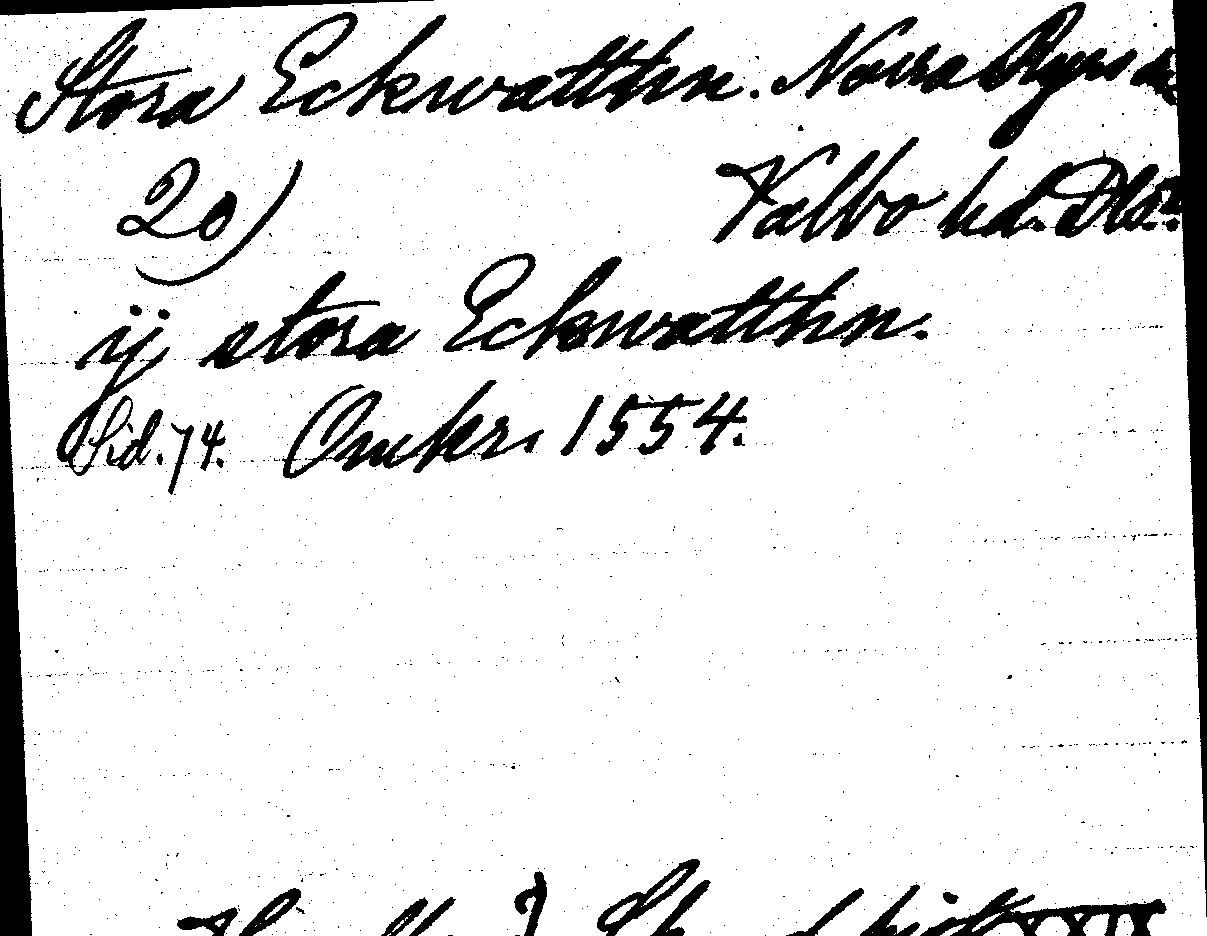 Stora Eckwatthn. Norra Ryrs sn
20) Valbo hd. Dlsd.
ij stora Eckwatthn.
Sid. 74. Omkr. 1554.